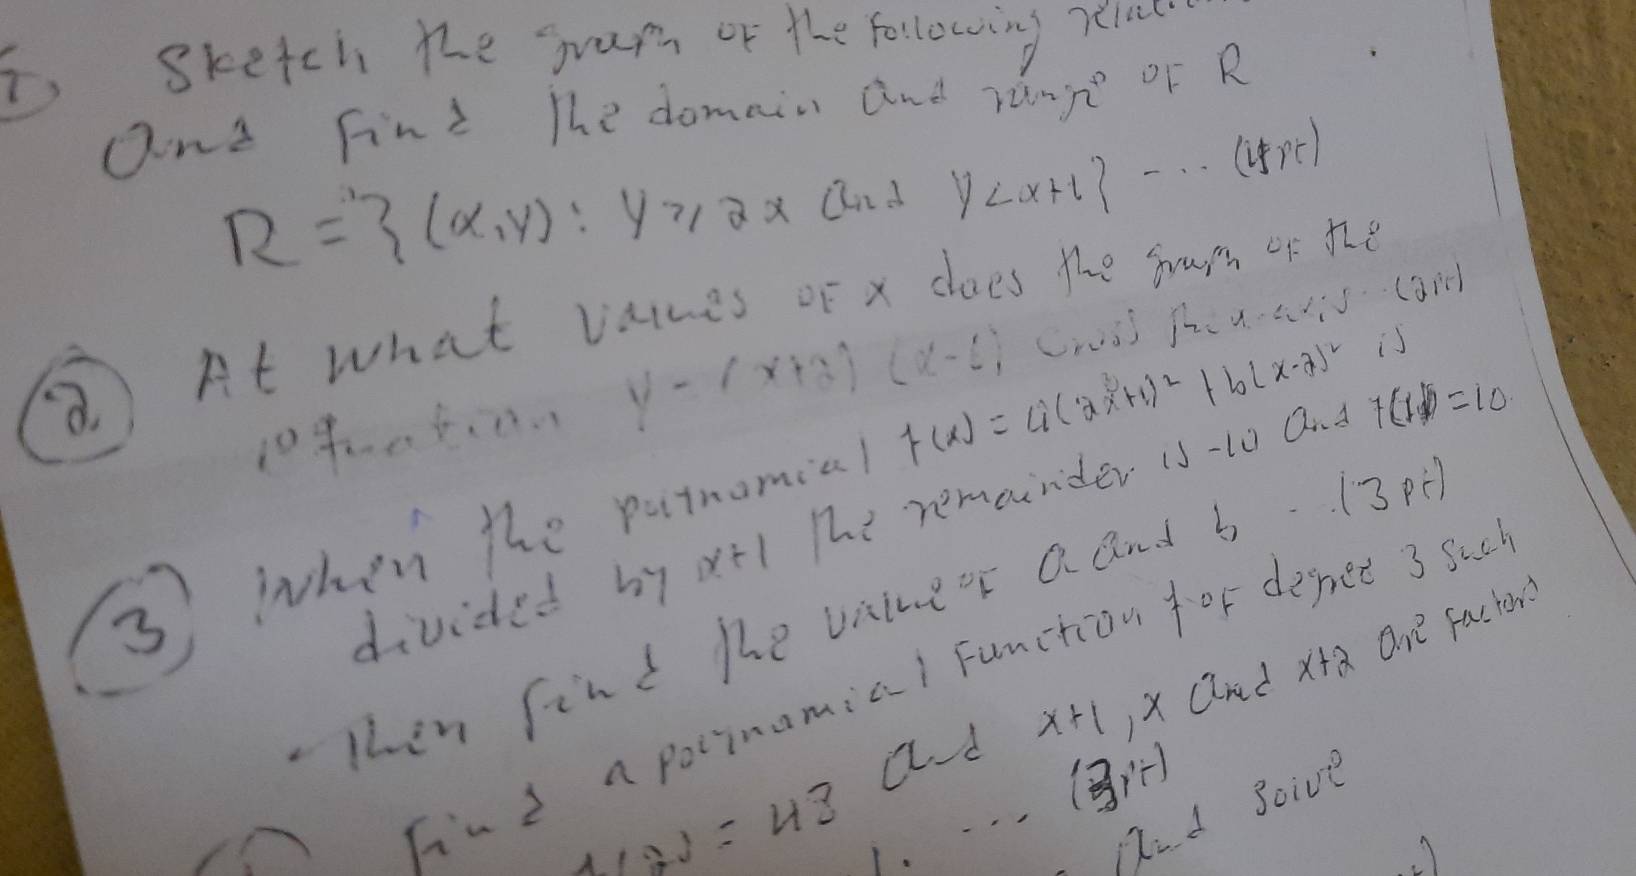 1 Sketch the graph of the following
and find the domain and range of R
R = {(x,y): y ≥ 2x and y < x+1} --.. (4pt)
2 At what values of x does the graph of the
function y = (x+2) (x-6) cross the x-axis.. (2pt)
3 When the polynomial f(x) = a(2x+1)² + b(x-2)² is
divided by x+1 the remainder is -10 and f(1) = 10.
Then find the value of a and b -- .(3 pt)
Find a polynomial function f of degree 3 such
f(2) = 48 and x+1, x and x+2 are factors
... (3pt)
and solve